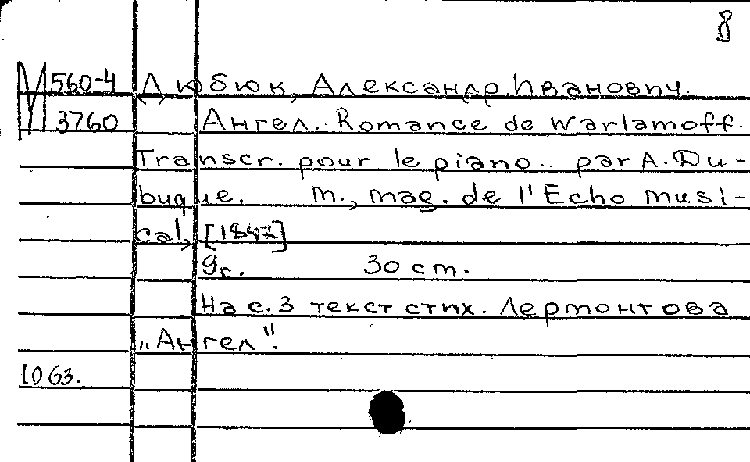 8
М 560-4 Дюбюк, Александр Иванович.
3760 Ангел. Romance de Warlamoff.
Transcr. pour le piano.. par A. Du-
buque. М., mag. de l'Echo musi-
cal, [1847]
9 с. 30 cm.
На с. 3 текст стих. Лермонтова
„Ангел".
1063.